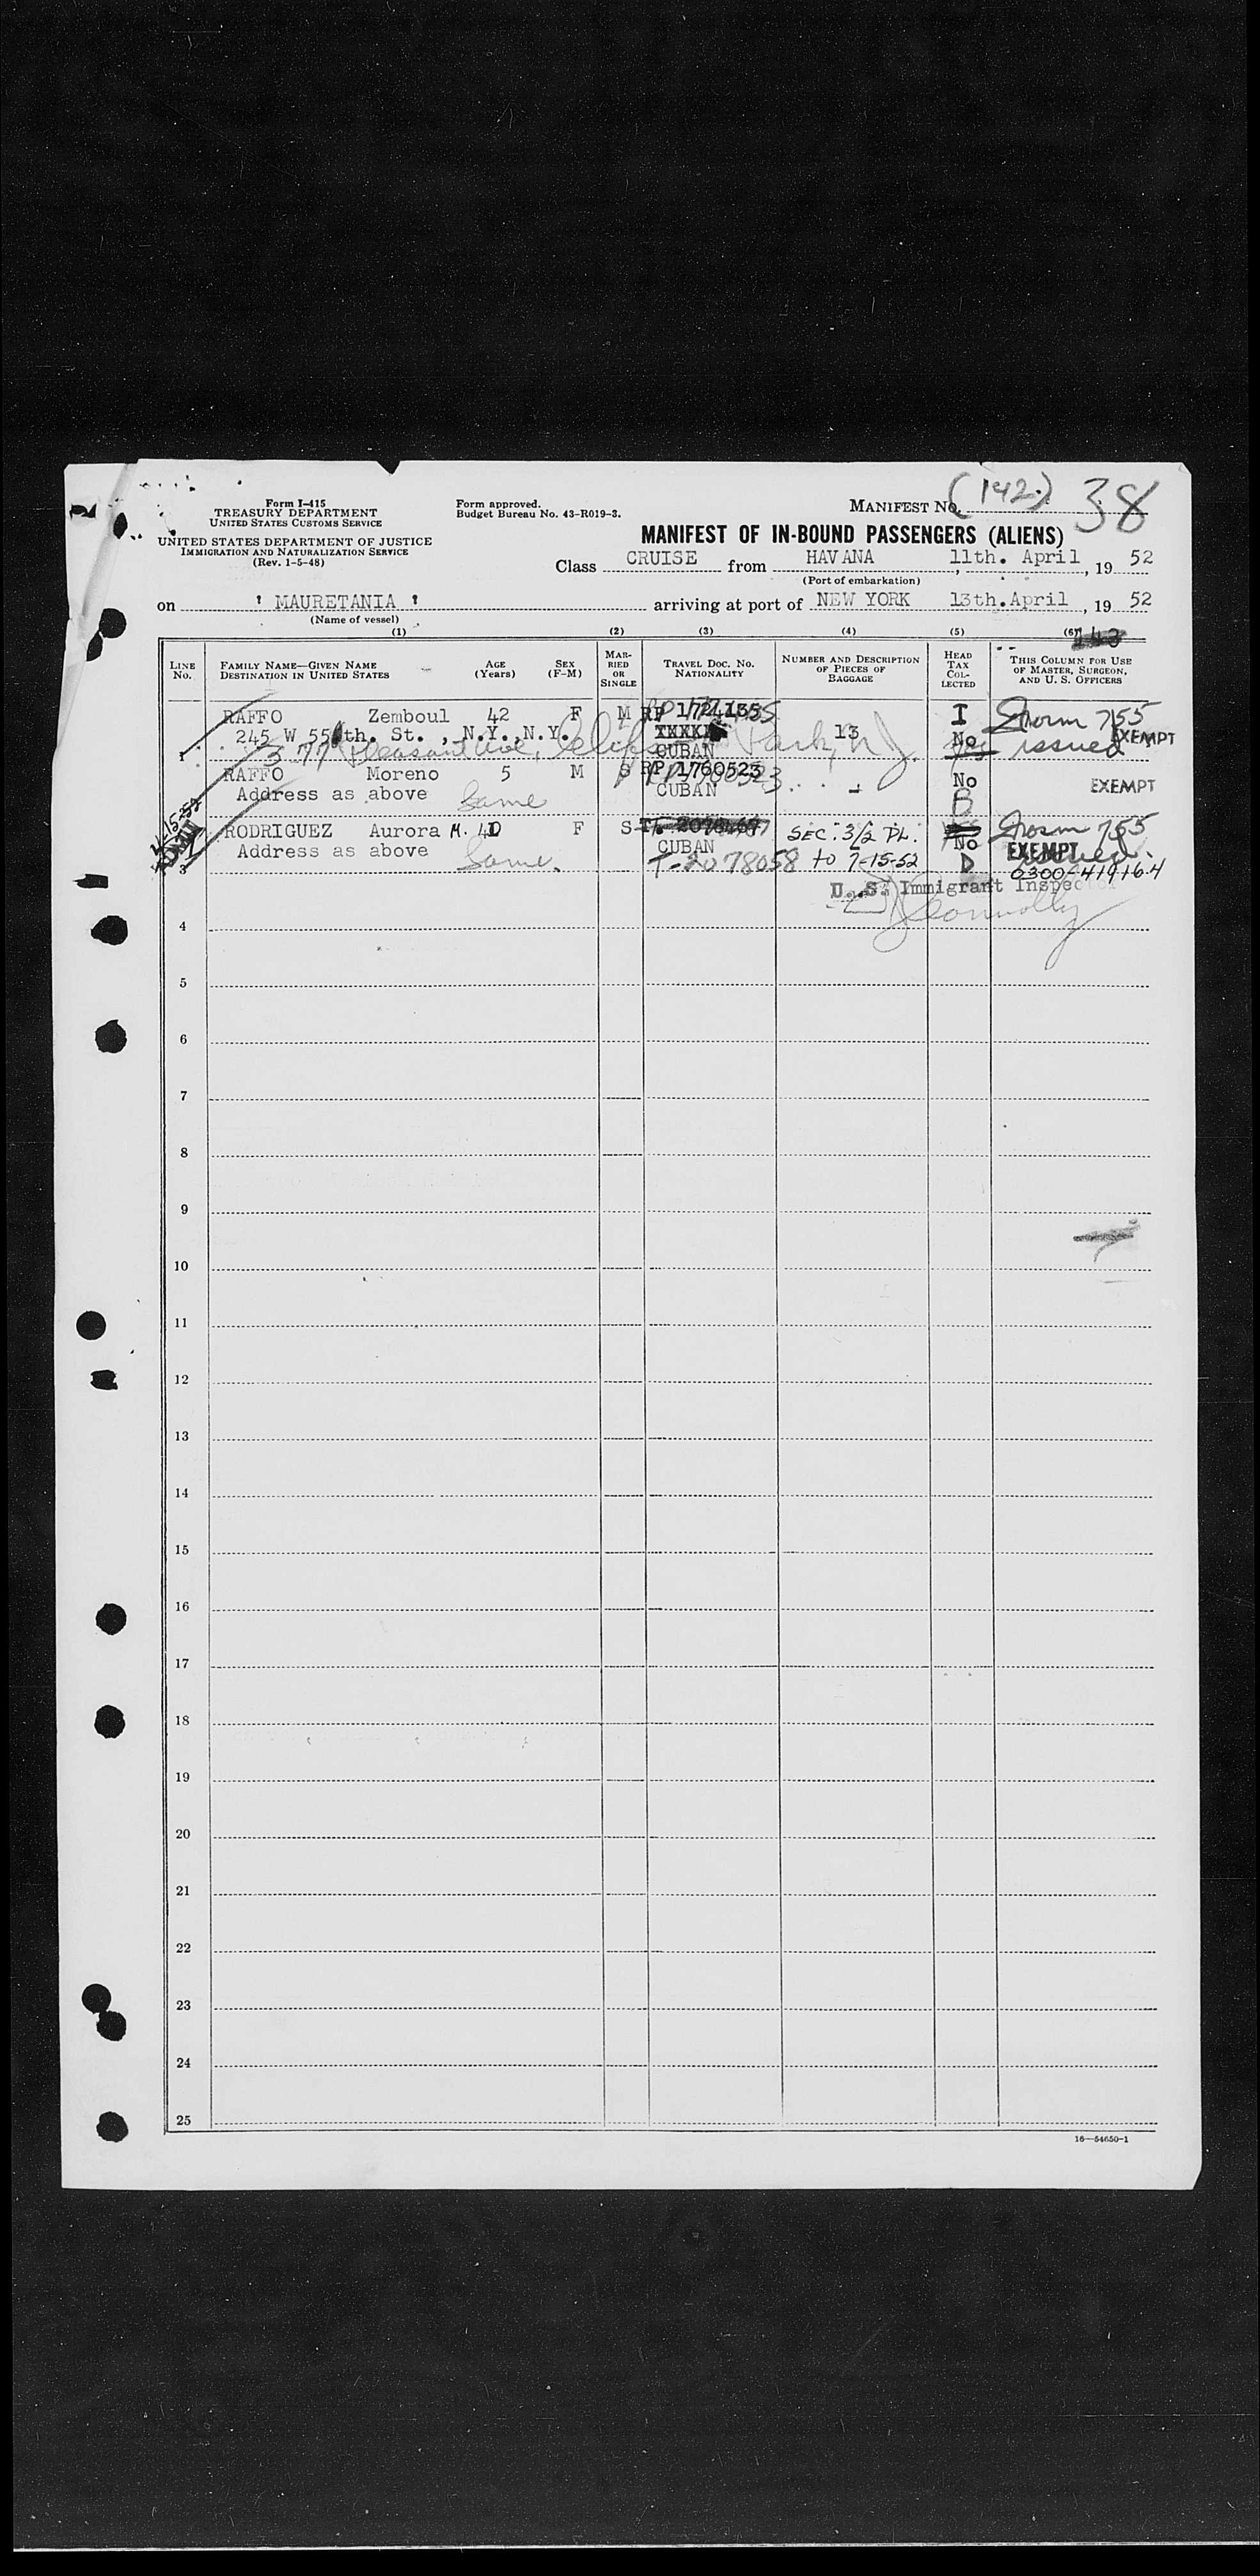 Form I-415
TREASURY DEPARTMENT
UNITED STATES CUSTOMS SERVICE
UNITED STATES DEPARTMENT OF JUSTICE
IMMIGRATION AND NATURALIZATION SERVICE
(Rev. 1-5-48)
Form approved.
Budget Bureau No. 43-R019-3.
MANIFEST NO. (142) 38
MANIFEST OF IN-BOUND PASSENGERS (ALIENS)
Class CRUISE from HAVANA, 11th. April, 19 52
(Port of embarkation)
on ' MAURETANIA ' arriving at port of NEW YORK 13th.April, 19 52
(Name of vessel)
(1) (2) (3) (4) (5) (6)
LINE No.
FAMILY NAME—GIVEN NAME
DESTINATION IN UNITED STATES
AGE (Years)
SEX (F-M)
MARRIED OR SINGLE
TRAVEL DOC. NO.
NATIONALITY
NUMBER AND DESCRIPTION OF PIECES OF BAGGAGE
HEAD TAX COLLECTED
THIS COLUMN FOR USE OF MASTER, SURGEON, AND U. S. OFFICERS
1 RAFFO Zemboul 42 F M RP 1724135 I Form 755
245 W 55th. St. , N.Y.,N.Y. 13 No issued EXEMPT
377 Pleasant Ave, Park, N J. CUBAN
RAFFO Moreno 5 M S RP 1760523 No EXEMPT
Address as above Same CUBAN - B
4-15-52
3 RODRIGUEZ Aurora M. F S SEC. 3/2 PL. No Form 755
Address as above Same. CUBAN EXEMPT
T-2078058 to 7-15-52 D 0300-419164
U. S. Immigrant Inspector
Connolly
4
5
6
7
8
9
10
11
12
13
14
15
16
17
18
19
20
21
22
23
24
25
16—54650-1